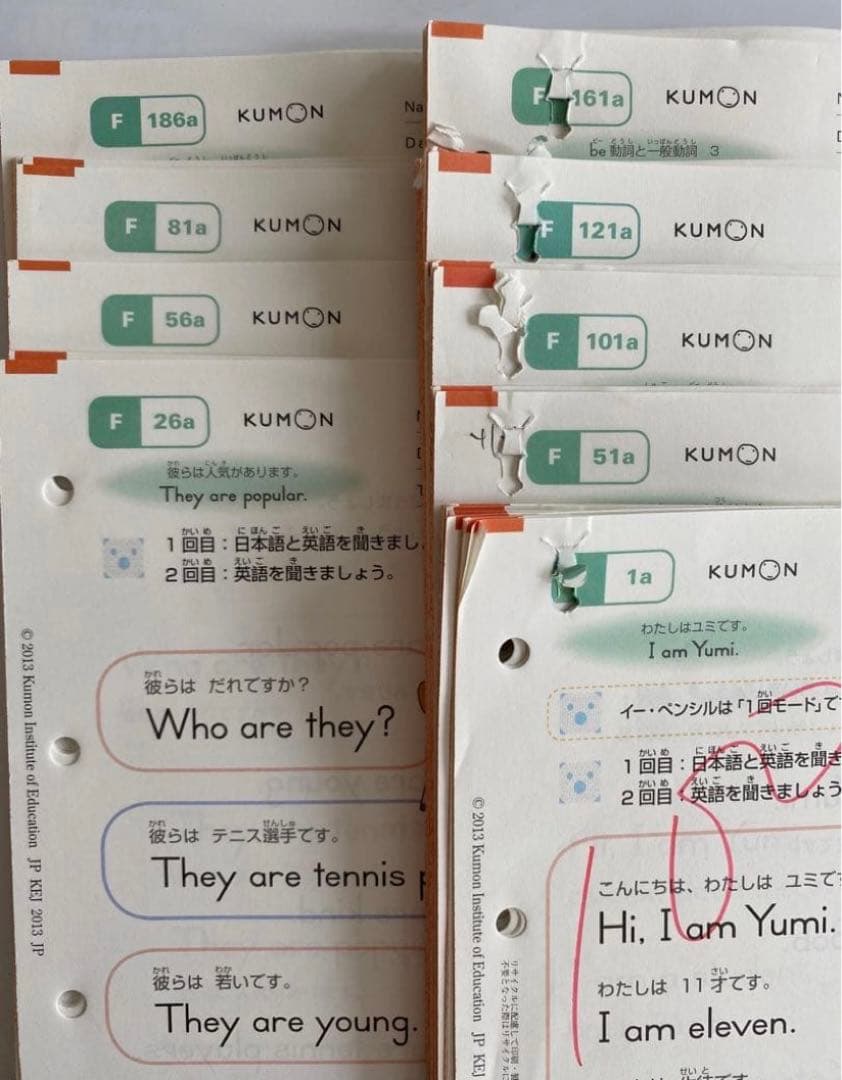 F 186a KUMON
Na
F 81a KUMON
F 56a KUMON
F 26a KUMON
彼らは人気があります。
They are popular.
1回目：日本語と英語を聞きまし
2回目：英語を聞きましょう。
彼らは だれですか？
Who are they?
彼らは テニス選手です。
They are tennis
彼らは 若いです。
They are young.
© 2013 Kumon Institute of Education JP KEJ 2013 JP
F 161a KUMON
be動詞と一般動詞 3
F 121a KUMON
F 101a KUMON
F 51a KUMON
1a KUMON
わたしはユミです。
I am Yumi.
イー・ペンシルは「1回モード」で
1回目：日本語と英語を聞き
2回目：英語を聞きましょう
こんにちは、わたしは ユミで
Hi, I am Yumi.
わたしは 11才です。
I am eleven.
© 2013 Kumon Institute of Education JP KEJ